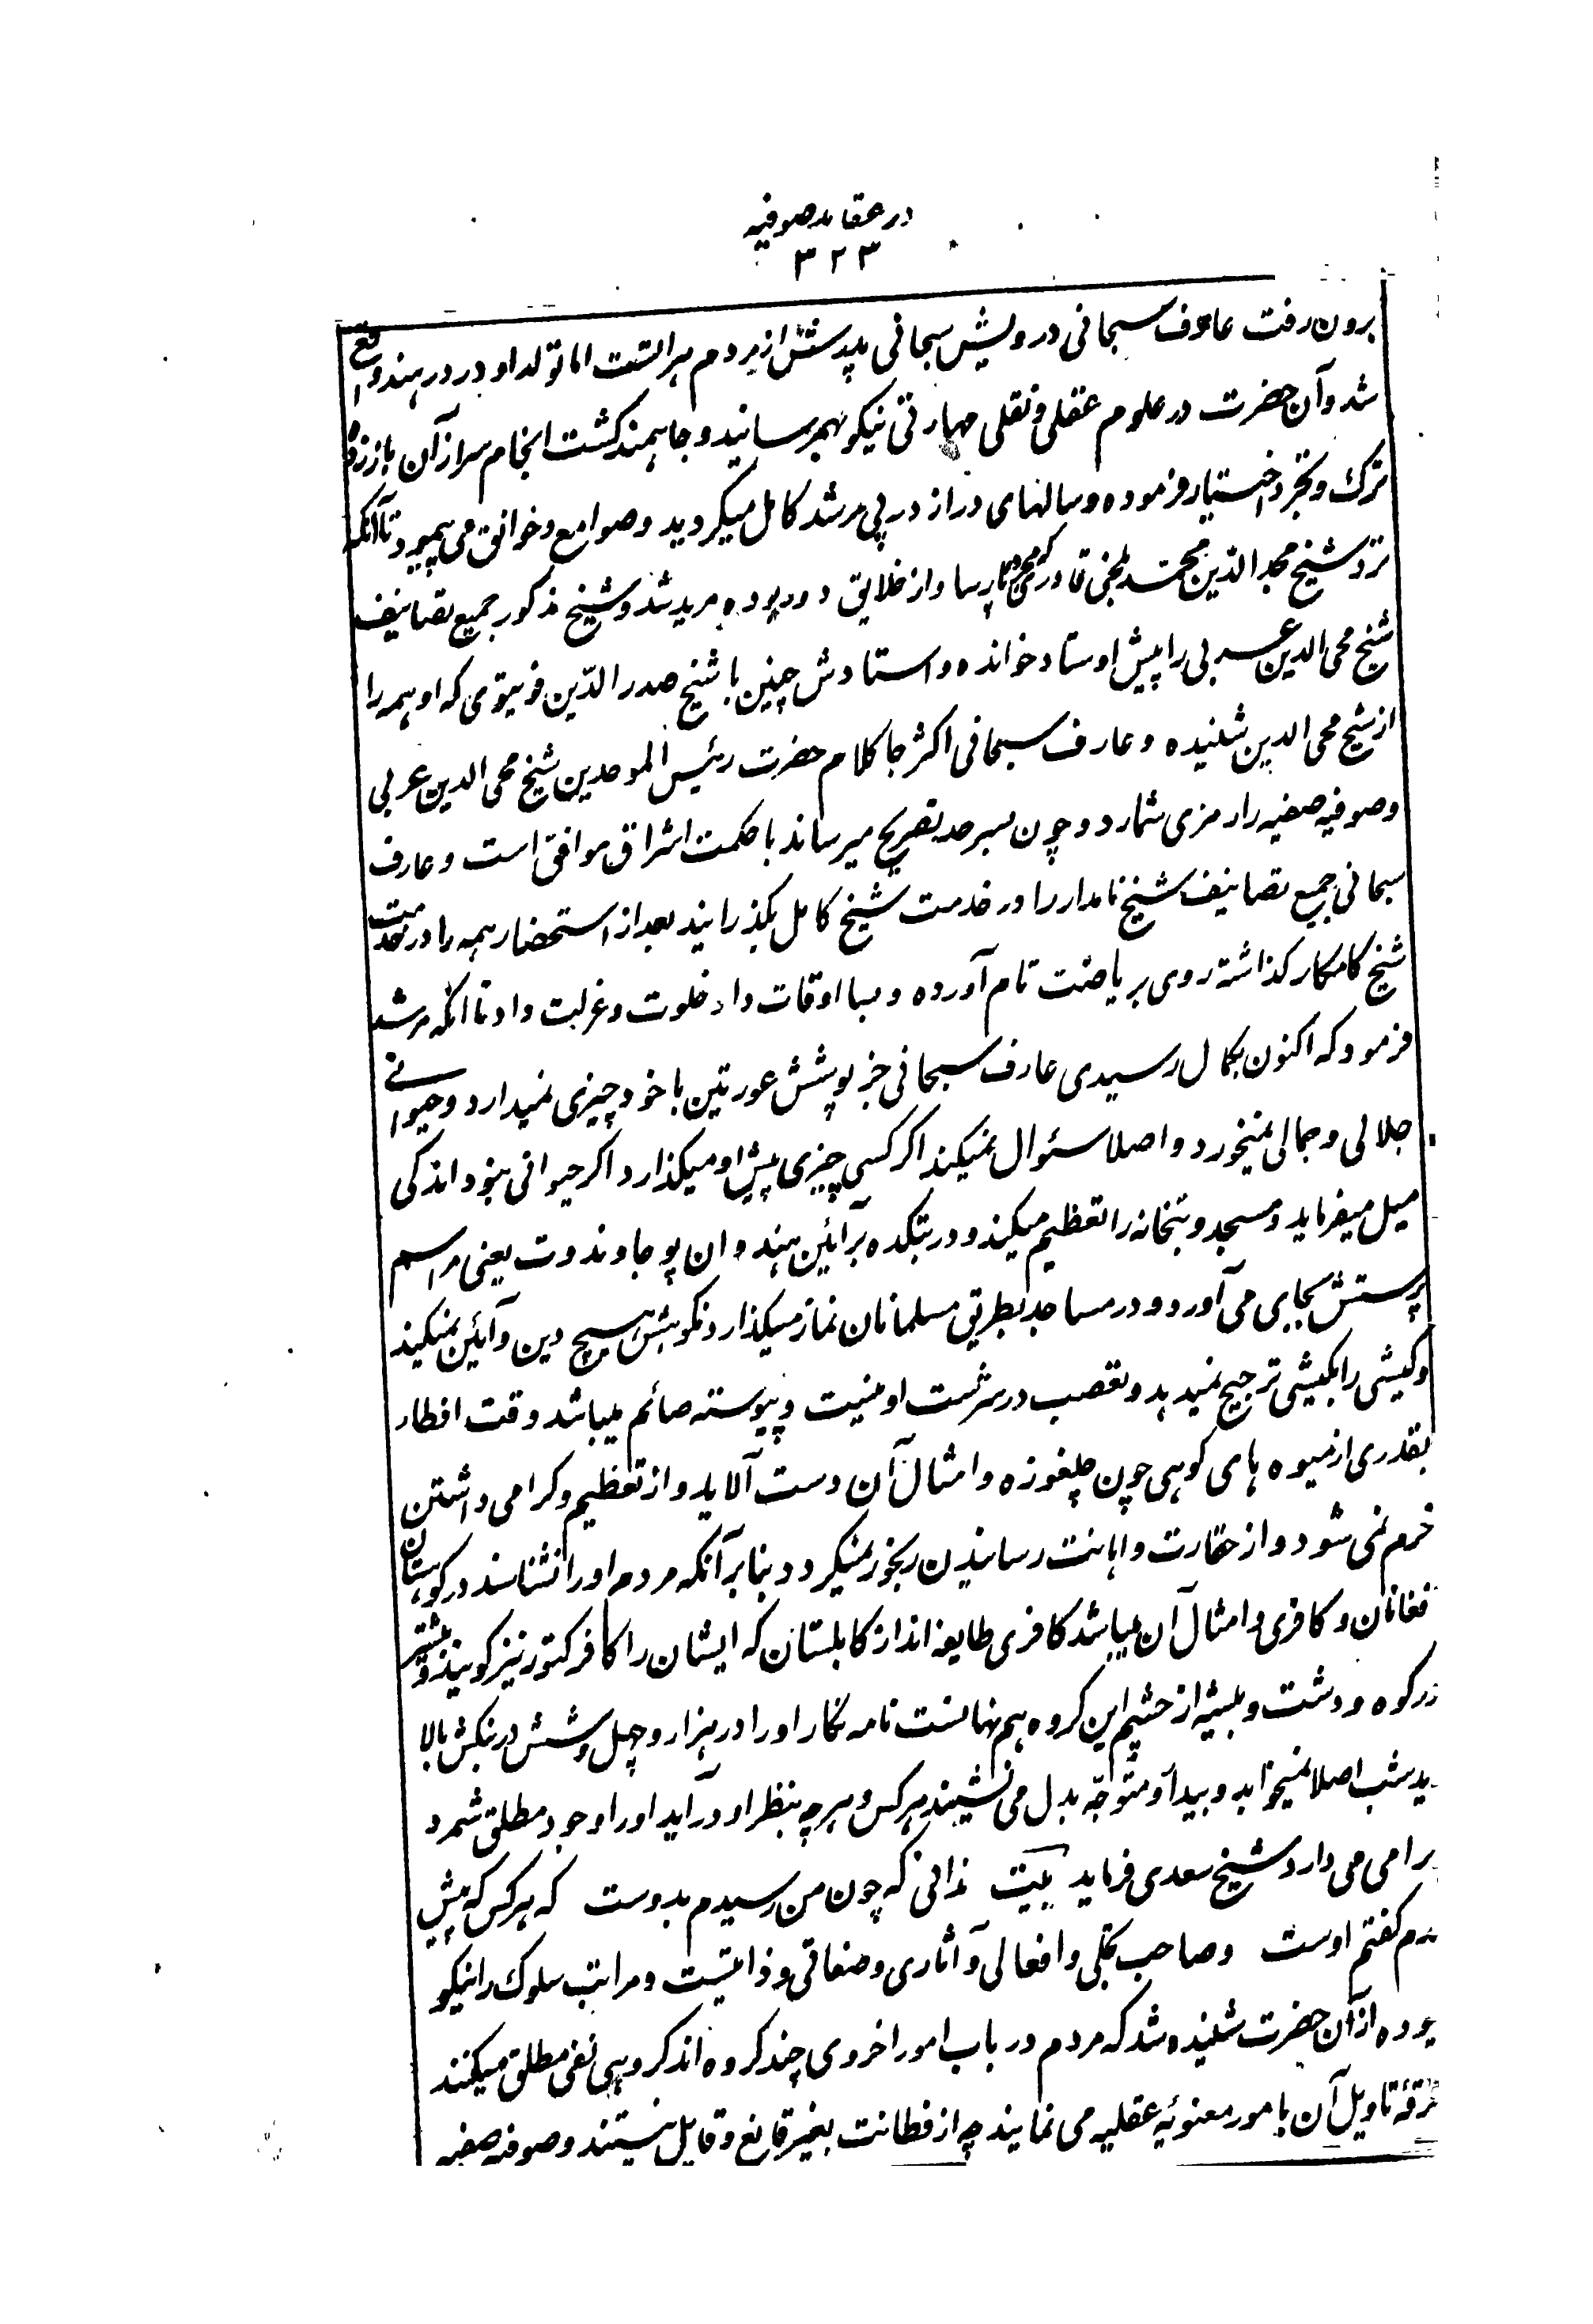 در عقاید صوفیه
۳۲۳
برون رفت عارف سبحانی درویش سبحانی پدرشش از مردم هراتست اما تولد او در در هند واقع
شد و آن حضرت در علوم عقلی و نقلی مهارتی نیکو بهمرسانید و جاهمند کشت انجام سر از آن باز زده
ترک و تجرد اختیار فرموده و سالهای دراز در پی مرشد کامل میکردید و صوامع و خوانق می پیمود تا آنکه
نزد شیخ مجد الدین محمد بلخی قادری که پارسا و از خلایق دور بوده مرید شد و شیخ مذکور جمیع تصانیف
شیخ محی الدین عربی را پیش اوستاد خوانده و استادش چنین با شیخ صدر الدین قونیوی که او همه را
از شیخ محی الدین شنیده و عارف سبحانی اکثر جا کلام حضرت رئیس الموحدین شیخ محی الدین عربی
و صوفیه صفیه را رمزی شمارد و چون بسرحد تصریح میرساند با حکمت اشراق موافق است و عارف
سبحانی جمیع تصانیف شیخ نامدار را در خدمت شیخ کامل بکذرانید بعد از استحضار همه را در خدمت
شیخ کامکار کذاشته روی بریاضت تام آورده و بسا اوقات داد خلوت و عزلت داد تا آنکه مرشد
فرمود که اکنون بکمال رسیدی عارف سبحانی جز پوشش عورتین با خود چیزی نمیدارد و حیوانی
جلالی و جمالی نمیخورد و اصلا سئوال نمیکند اکر کسی چیزی پیش او میکذارد اکر حیوانی نبود اندکی
میل میفرماید و مسجد و بتخانه را تعظیم میکند و در بتکده بر آئین هندوان پوجا و ندوت یعنی مراسم
پرستش بجای می آورد و در مساجد بطریق مسلمانان نماز میکذارد نکوهش هیچ دین و آئین نمیکند
و کیشی را بکیشی ترجیح نمیدهد و تعصب در سرشت او نیست و پیوسته صائم میباشد وقت افطار
بقدری از میوه های کوهی چون چلغوزه و امثال آن دست آلاید و از تعظیم و کرامی داشتن
خرم نمی شود و از حقارت و اهانت رسانیدن رنجور نمیکردد بنابر آنکه مردم او را نشناسند در کوهستان
فغانان و کافری و امثال آن میباشد کافری طایفه اند از کابلستان که ایشان را کافر کتور نیز کویند و بیشتر
در کوه و دشت و بیشه از چشم این کروه هم نهانست نامه نکار او را در هزار و چهل و شش در نبکش بالا
دید شب اصلا نمیخوابد و بیدار متوجه بدل می نشیند هر کس و هر چه بنظر او در آید او را وجود مطلق شمرد
رامی می دارد شیخ سعدی فرماید بیت ندانی که چون من رسیدم بدوست که هر کس که پیش
دم کفتم اوست و صاحب تجلی و افعالی و آثاری و صفاتی و ذاتیست و مراتب سلوک را نیکو
بوده از آن حضرت شنیده شد که مردم در باب امور اخروی چند کروه اند کروهی نفی مطلق میکنند
فرقه تاویل آن بامور معنویه عقلیه می نمایند چه از فطانت بغیر قانع و قایل نیستند و صوفیه صفیه